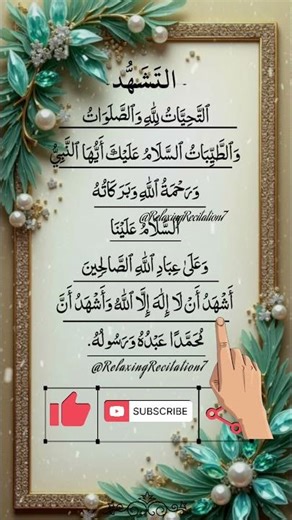 - التَّشَهُّد -
التَّحِيَّاتُ لِلَّهِ وَالصَّلَوَاتُ
وَالطَّيِّبَاتُ السَّلَامُ عَلَيْكَ أَيُّهَا النَّبِيُّ
وَرَحْمَةُ اللَّهِ وَبَرَكَاتُهُ
@RelaxingRecitation7
السَّلَامُ عَلَيْنَا
وَعَلَىٰ عِبَادِ اللَّهِ الصَّالِحِينَ
أَشْهَدُ أَنْ لَا إِلَٰهَ إِلَّا اللَّهُ وَأَشْهَدُ أَنَّ
مُحَمَّدًا عَبْدُهُ وَرَسُولُهُ.
@RelaxingRecitation7
SUBSCRIBE